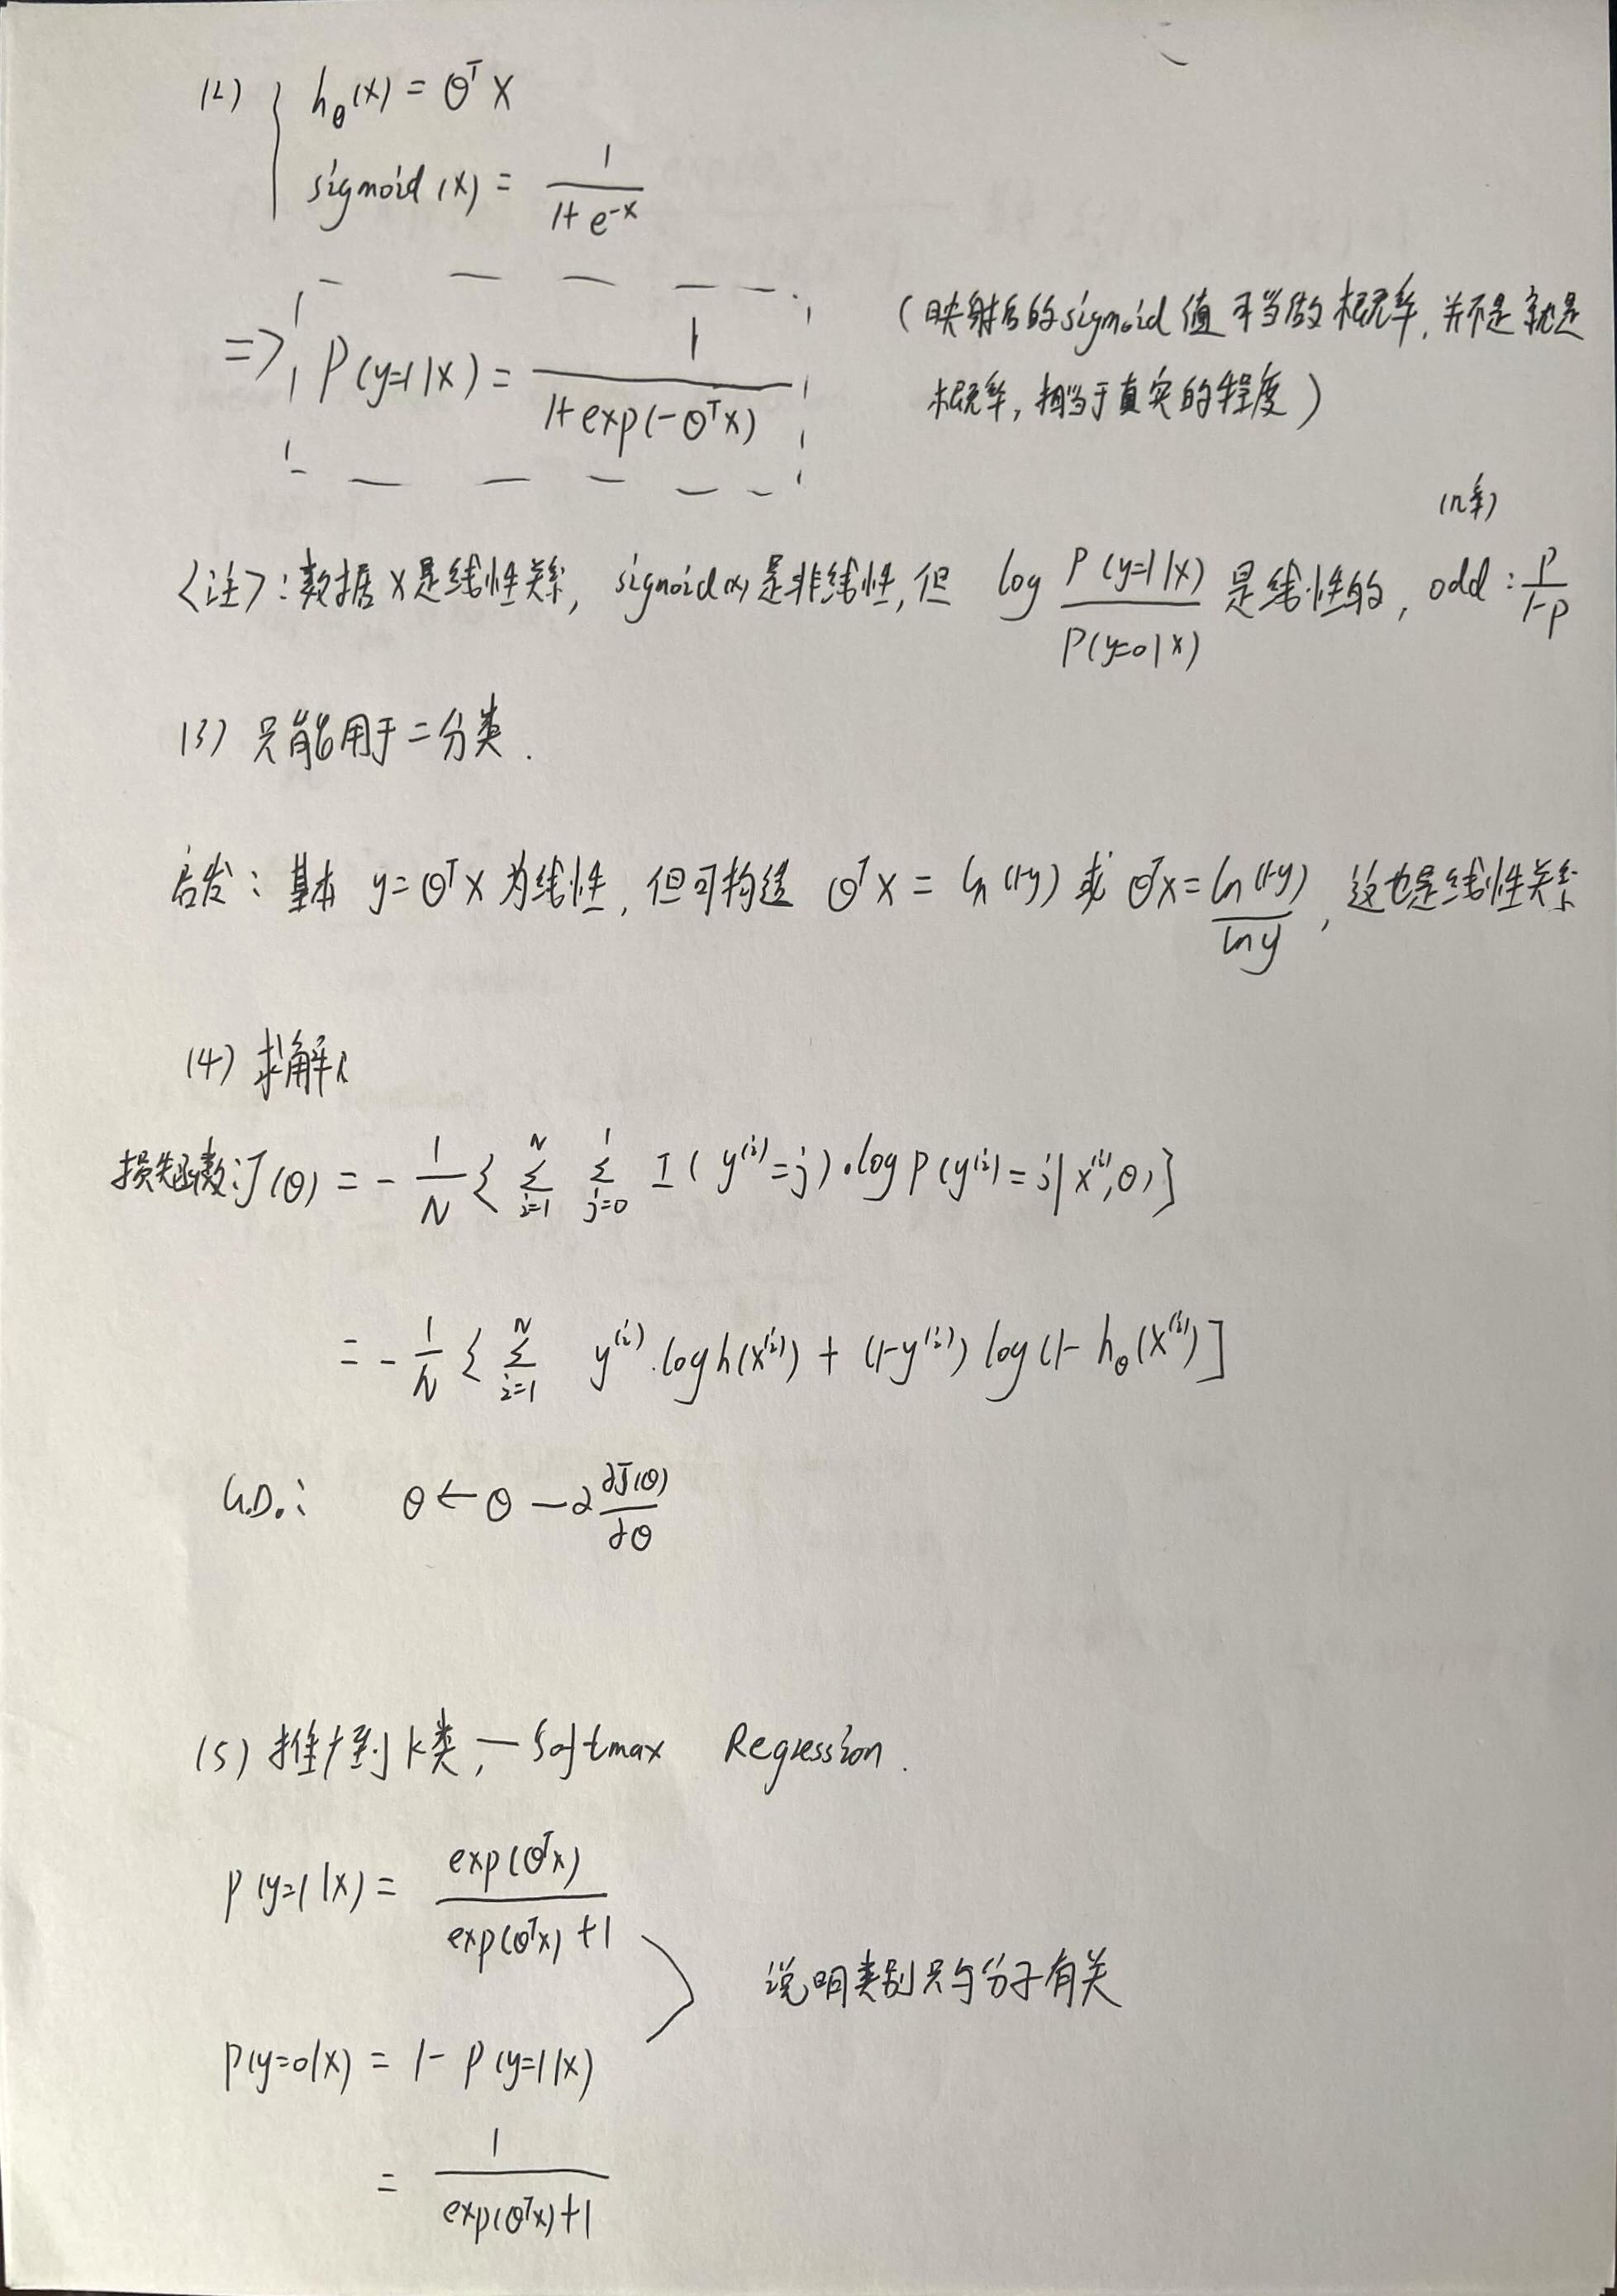 (2) { h_θ(x) = θ^T x
sigmoid(x) = 1/(1+e^{-x})
=> P(y=1|x) = 1/(1+exp(-θ^T x))
(映射后的sigmoid值可当做概率,并不是就是
概率,相当于真实的程度)
(几率)
<注>:数据x是线性关系, sigmoid(x)是非线性,但 log P(y=1|x)/P(y=0|x) 是线性的, odd: P/(1-P)
(3) 只能用于二分类.
启发: 基本 y=θ^T x 为线性, 但可构造 θ^T x = ln(1-y) 或 θ^T x = ln(1-y)/ln y, 这也是线性关系
(4) 求解
损失函数: J(θ) = -1/N { Σ_{i=1}^{N} Σ_{j=0}^{1} I(y^{(i)}=j)·log P(y^{(i)}=j|x^{(i)},θ) ]
= -1/N { Σ_{i=1}^{N} y^{(i)}·log h(x^{(i)}) + (1-y^{(i)}) log(1-h_θ(x^{(i)}) ]
G.D.: θ ← θ - α ∂J(θ)/∂θ
(5) 推广到k类, — Softmax Regression.
P(y=1|x) = exp(θ^T x)/(exp(θ^T x)+1)
说明类别只与分子有关
P(y=0|x) = 1- P(y=1|x)
= 1/(exp(θ^T x)+1)